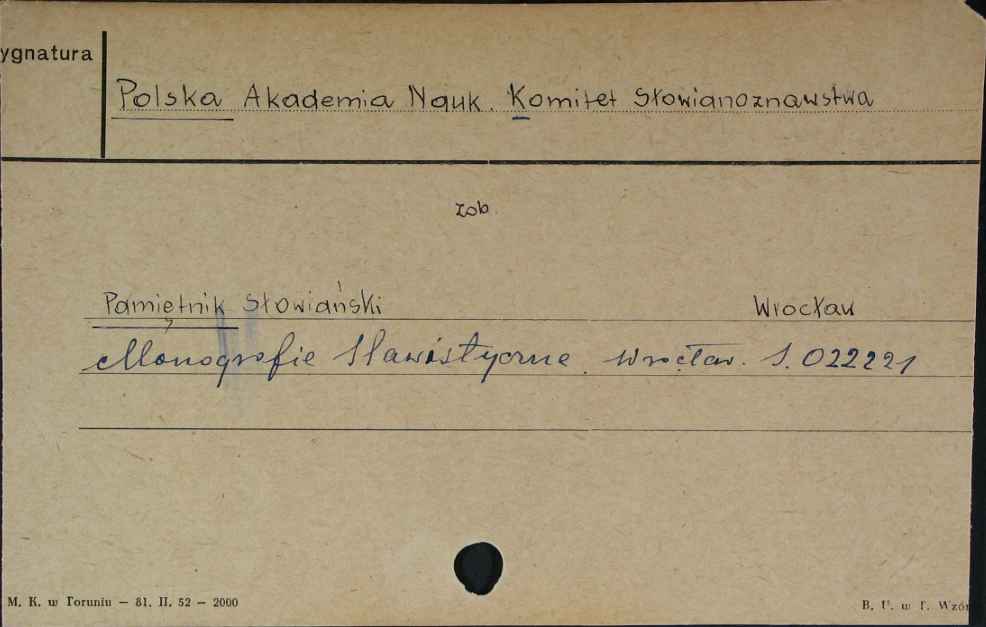 ygnatura
Polska Akademia Nauk. Komitet Słowianoznawstwa
zob.
Pamiętnik Słowiański Wrocław
Monografie Slawistyczne. Wrocław. S. 022221
M. K. w Toruniu — 81. II. 52 — 2000
B. U. w T. Wzór